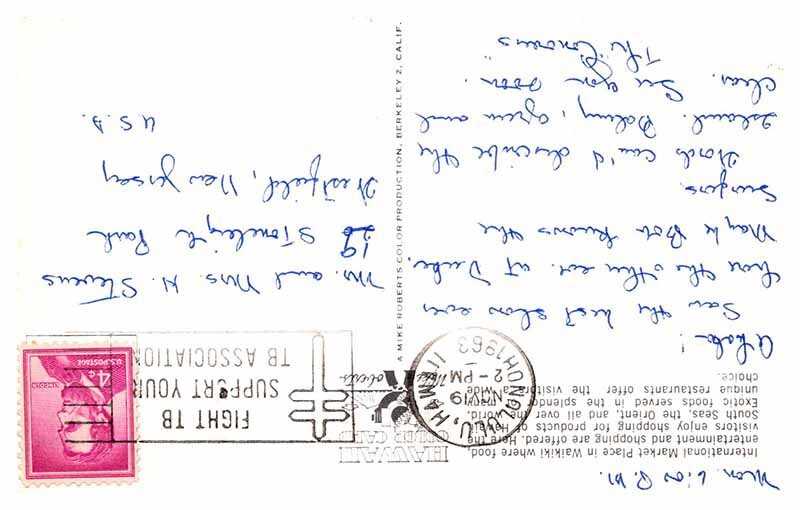 Mon. 6:00 P.M.
International Market Place in Waikiki where food,
entertainment and shopping are offered. Here the
visitors enjoy shopping for products of Hawaii,
South Seas, the Orient, and all over the world.
Exotic foods served in the splendor of
unique restaurants offer the visitors a wide
choice.
Aloha!
Saw the best show ever
here the other eve. at Duke.
Maybe Bob knows the
Surfers.
Words can't describe the
Island. Balmy, green and
clear. See you soon.
The Conovers
A MIKE ROBERTS COLOR PRODUCTION, BERKELEY 2, CALIF.
HAWAII
COLOR CARD
Mike Roberts
HONOLULU, HAWAII
NOV 19
2-PM
1963
FIGHT TB
SUPPORT YOUR
TB ASSOCIATION
LINCOLN
4¢
U.S. POSTAGE
Mr. and Mrs. H. Stevens
19 Stoneleigh Park
Westfield, New Jersey
U.S.A.